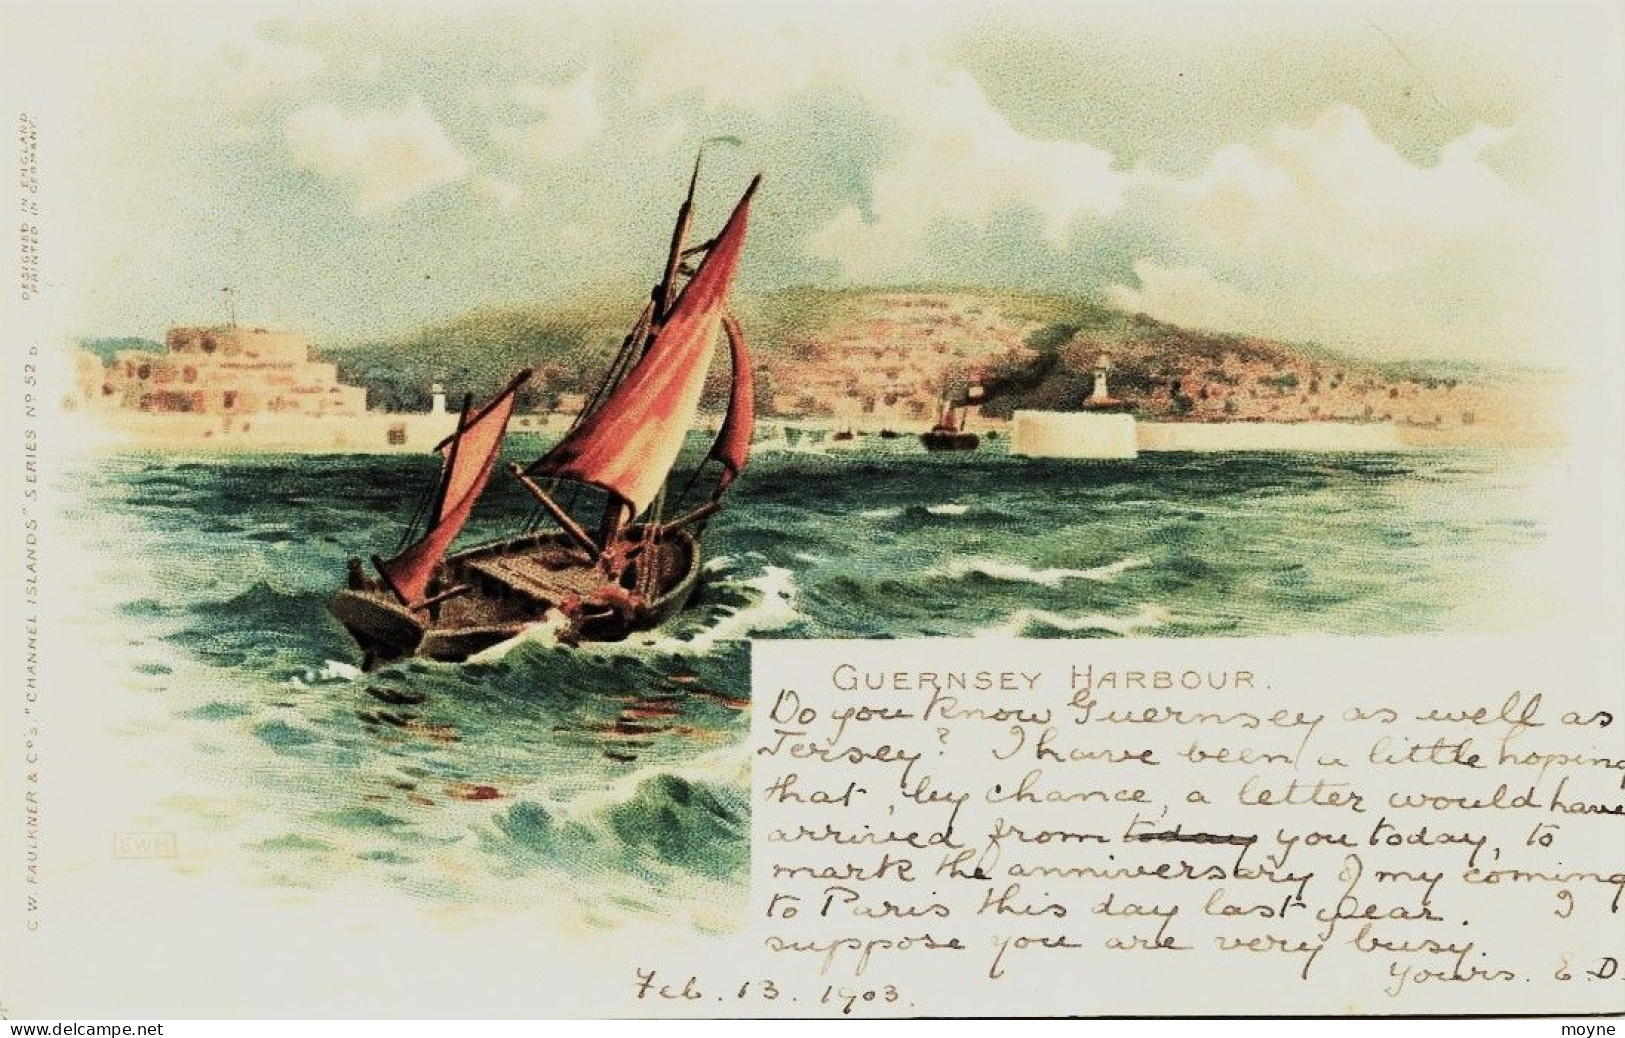 DESIGNED IN ENGLAND
PRINTED IN GERMANY.
C. W. FAULKNER & Co's. "CHANNEL ISLANDS" SERIES No 52 D
EWH
GUERNSEY HARBOUR.
Do you know Guernsey as well as
Jersey? I have been a little hoping
that, by chance, a letter would have
arrived from today you today, to
mark the anniversary of my coming
to Paris this day last year. I
suppose you are very busy.
Yours. E.D.
Feb. 13. 1903.
www.delcampe.net
moyne